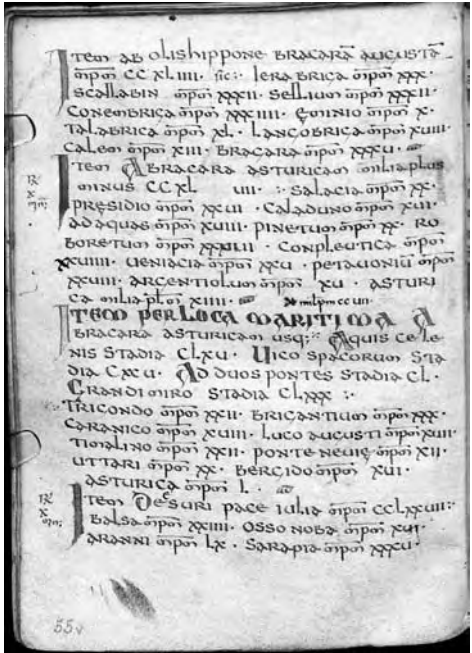 Item ab olishippone bracarā augustā
mpm CC XLIIII · sic: Ierabrica mpm XXX ·
scallabin mpm XXXII · sellium mpm XXXII ·
conembrica mpm XXXIIII · eminio mpm X ·
talabrica mpm XL · lancobrica mpm XVIII ·
calem mpm XIII · bracara mpm XXXV ·
Item A bracara asturicam milia plus
minus CC XL VIII · : salacia mpm XX ·
presidio mpm XXVI · caladuno mpm XVI ·
ad aquas mpm XVIII · pinetum mpm XX · ro
boretum mpm · compleutica mpm
XXVIIII · ueniacia mpm XXV · petauonium mpm
XXVIII · argentiolum mpm XV · asturi
ca milia plm XIIII ·
ITEM PER LOCA MARITIMA A
bracara asturicam usq: Aquis cele
nis stadia CLXV · Uico spacorum sta
dia CXCV · Ad duos pontes stadia CL ·
Grandimiro stadia CLXXX :
Tricondo mpm XXII · brigantium mpm XXX ·
caranico mpm XVIII · luco augusti mpm XVII
timalino mpm XXII · ponte neuie mpm XII ·
uttari mpm XX · bergido mpm XVI ·
asturica mpm L ·
Item De esuri pace iulia mpm CCLXXVII :
balsa mpm XXIIII · ossonoba mpm XVI
aranni mpm LX · sarapia mpm XXXV ·
55v